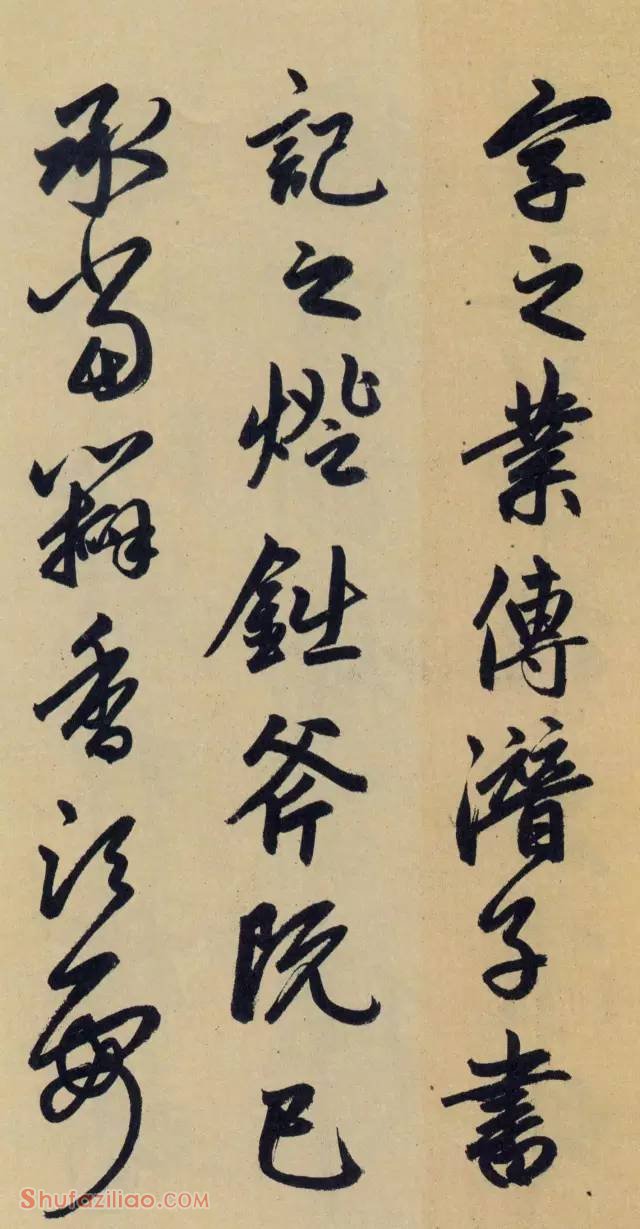 字之業傳潛子書
記之燈鈯斧既已
承當瓣香須要
Shufaziliao.COM